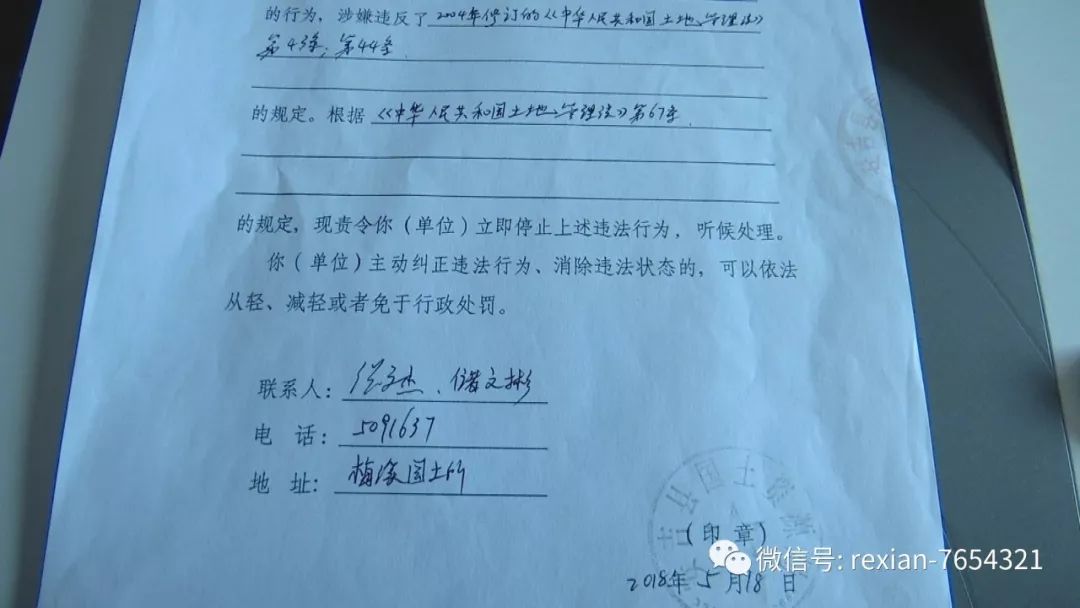 的行为，涉嫌违反了 2004年修订的《中华人民共和国土地管理法》
第43条；第44条
的规定。根据《中华人民共和国土地管理法》第67条
的规定，现责令你（单位）立即停止上述违法行为，听候处理。
你（单位）主动纠正违法行为、消除违法状态的，可以依法
从轻、减轻或者免于行政处罚。
联系人：文杰、储文彬
电 话：5091637
地 址：梅溪国土所
（印 章）
微信号: rexian-7654321
2018年 5月18日